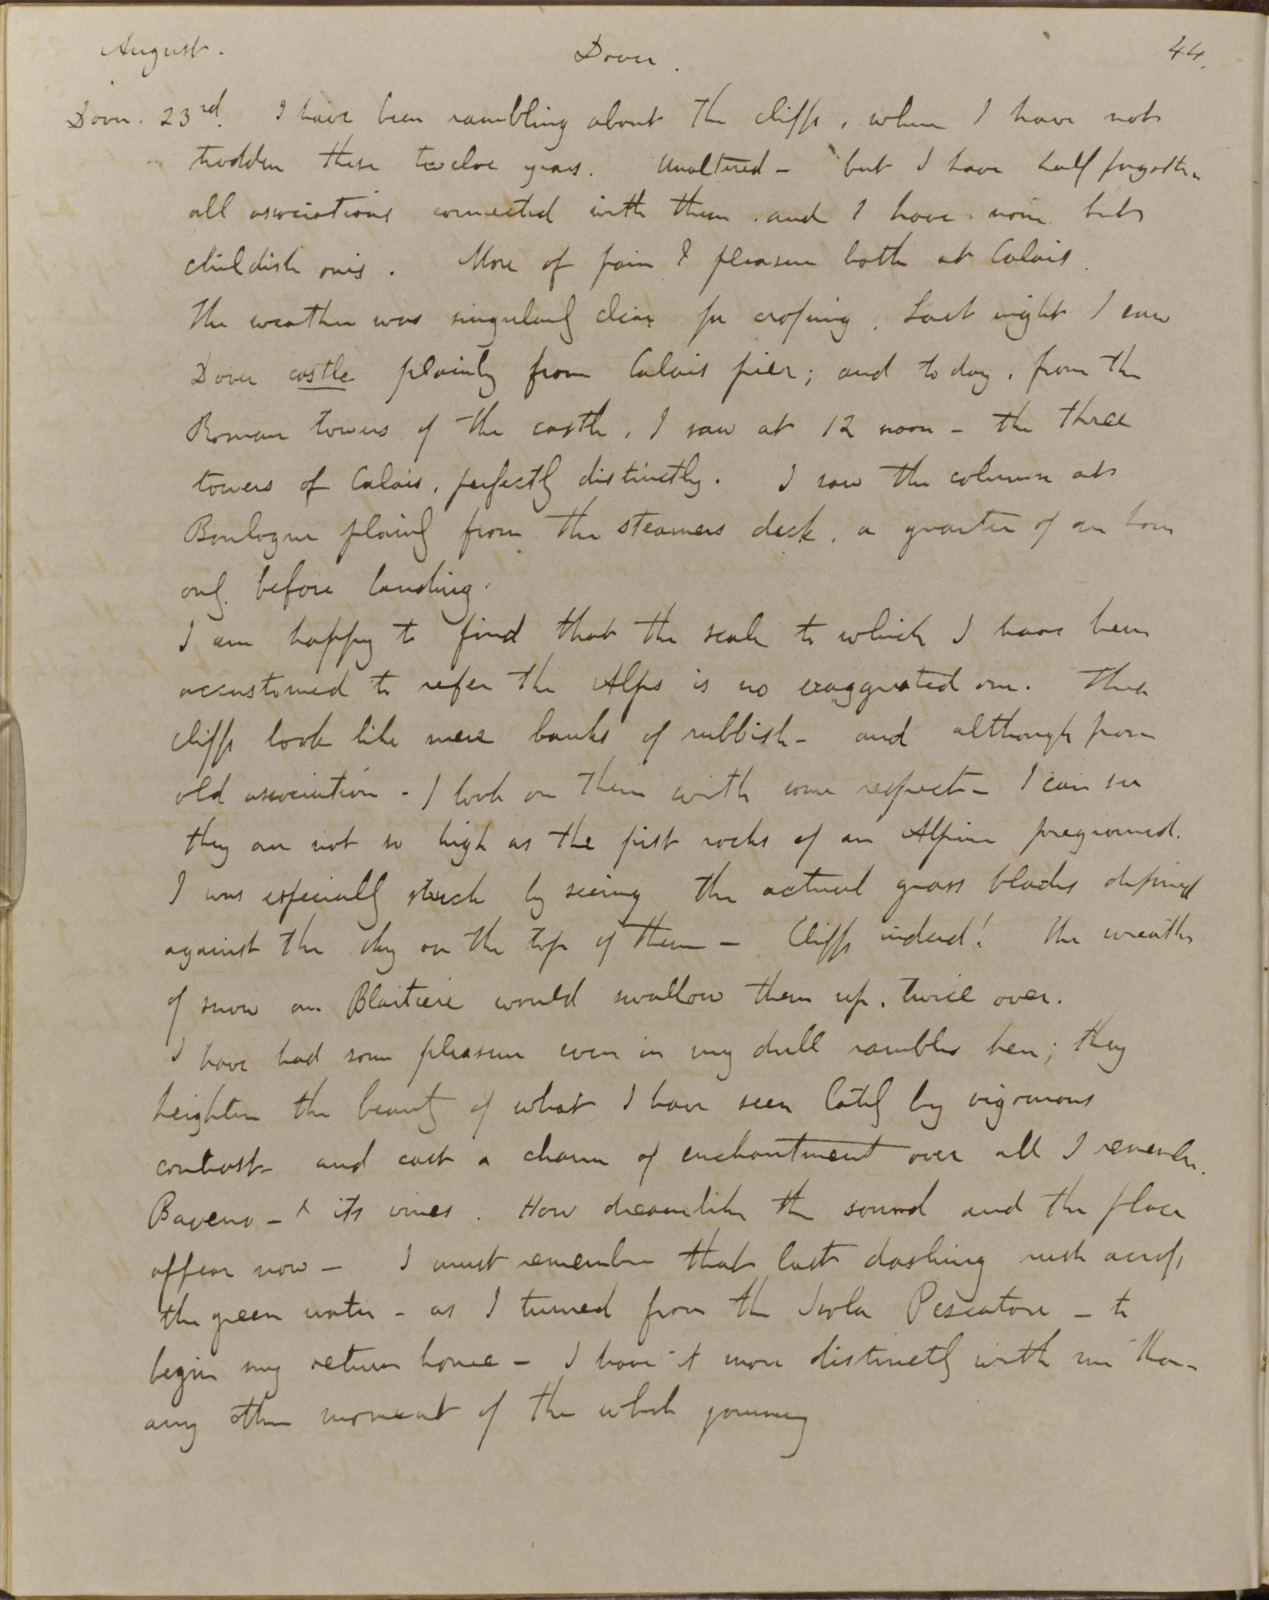 August. Dover. 44.
Dover. 23rd. I have been rambling about the cliffs, where I have not
trodden these twelve years. Unaltered - but I have half forgotten
all associations connected with them, and I have none but
childish ones. More of pain & pleasure both at Calais.
The weather was singularly clear for crossing. Last night I saw
Dover castle plainly from Calais pier; and today, from the
Roman towers of the castle, I saw at 12 noon - the three
towers of Calais, perfectly distinctly. I saw the column at
Boulogne plainly from the steamers deck, a quarter of an hour
only before landing.
I am happy to find that the scale to which I have been
accustomed to refer the Alps is no exaggerated one. These
cliffs look like mere banks of rubbish - and although from
old association - I look on them with some respect - I can see
they are not so high as the first rocks of an Alpine foreground.
I was especially struck by seeing the actual grass blades defined
against the sky on the top of them - Cliffs indeed! The wreaths
of snow on Blaitiere would swallow them up, twice over.
I have had some pleasure even in my dull rambles here; they
heighten the beauty of what I have seen lately by vigorous
contrast and cast a charm of enchantment over all I remember.
Baveno - & its vines. How dreamlike the sound and the place
appear now - I must remember that last dashing rush across
the green water - as I turned from the Isola Pescatore - to
begin my return home - I have it more distinctly with me than
any other moment of the whole journey